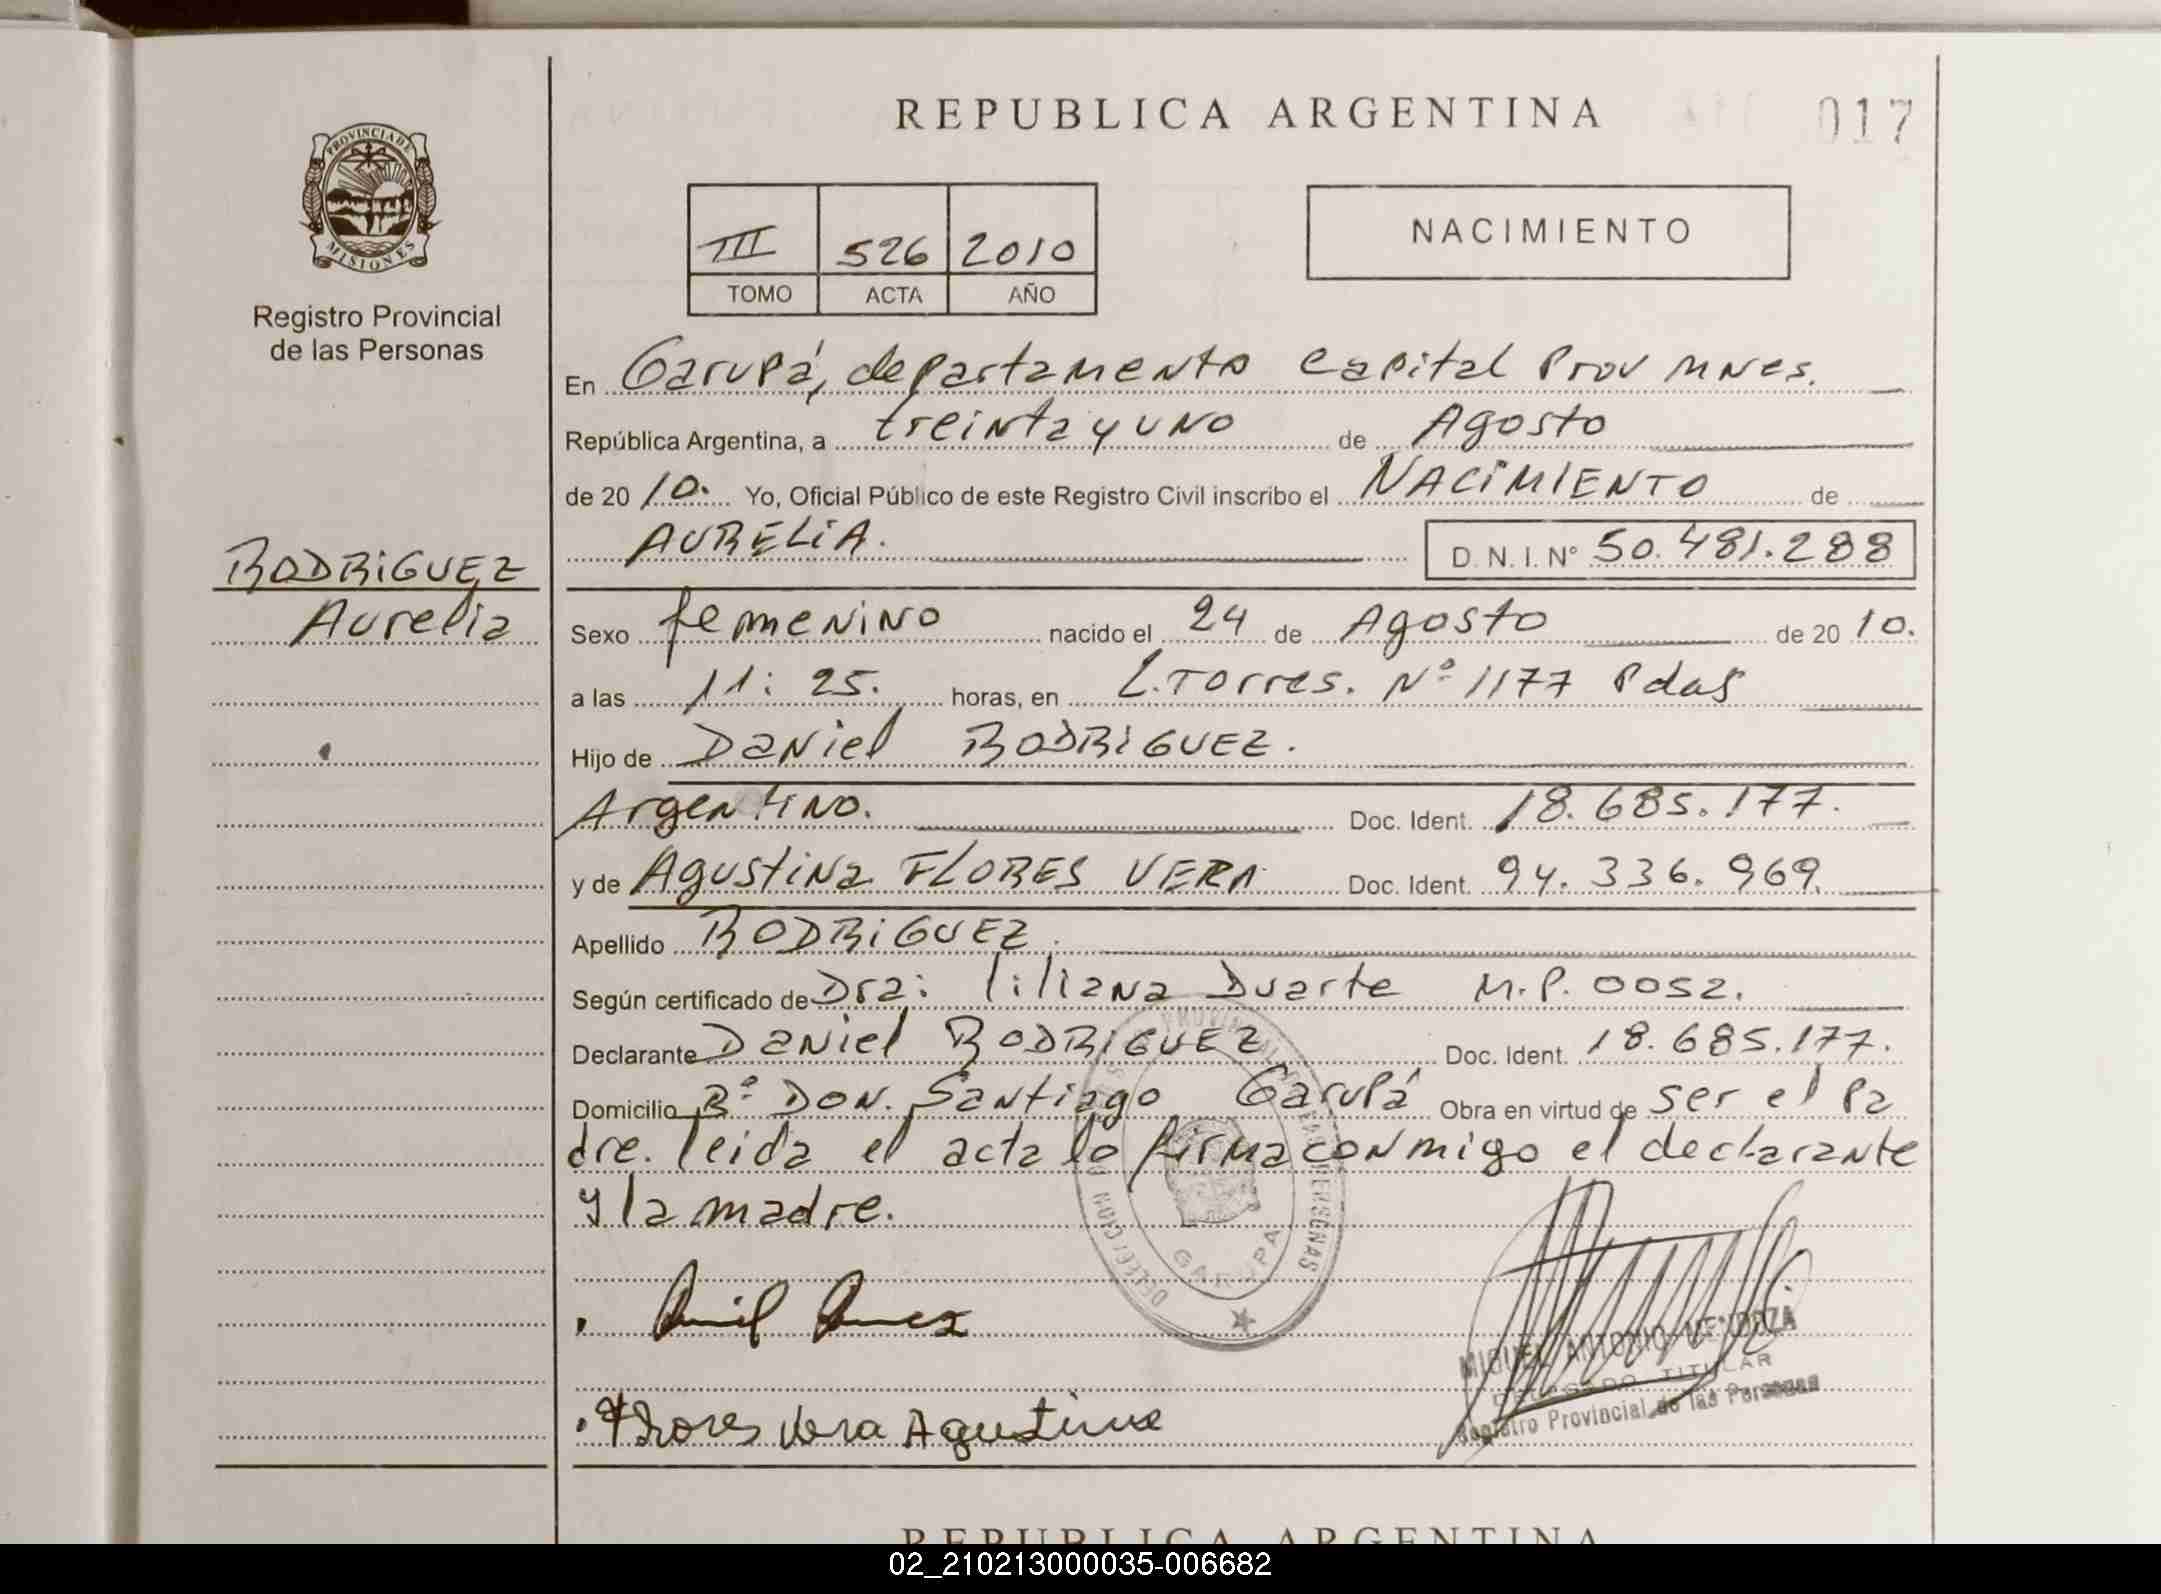 REPUBLICA ARGENTINA
017
PROVINCIA DE
MISIONES
Registro Provincial
de las Personas
III 526 2010
TOMO ACTA AÑO
NACIMIENTO
En Garupá, departamento Capital Prov Mnes.
República Argentina, a treinta y uno de Agosto
de 2010. Yo, Oficial Público de este Registro Civil inscribo el NACIMIENTO de
AURELIA. D. N. I. N° 50.481.288
RODRIGUEZ
Aurelia
Sexo femenino nacido el 24 de Agosto de 2010.
a las 11:25. horas, en L. Torres. Nº 1177 Pdas
Hijo de Daniel RODRIGUEZ.
Argentino. Doc. Ident. 18.685.177.
y de Agustina FLORES VERA Doc. Ident. 94.336.969.
Apellido RODRIGUEZ.
Según certificado de Dra: liliana Duarte M.P. 0052.
Declarante Daniel RODRIGUEZ Doc. Ident. 18.685.177.
Domicilio Bº DON. Santiago Garupá Obra en virtud de ser el Pa
dre. leida el acta lo firma conmigo el declarante
y la madre.
GARUPA
Flores Vera Agustina
MIGUEL ANTONIO MENDOZA
DELEGADO TITULAR
Registro Provincial de las Personas
REPUBLICA ARGENTINA
02_210213000035-006682